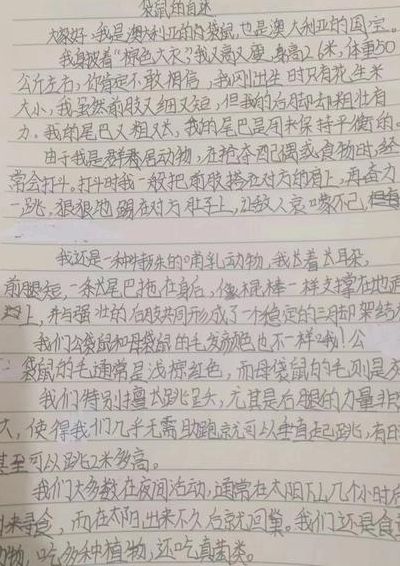 袋鼠的自述
大家好,我是澳大利亚的袋鼠,也是澳大利亚的国宝。
我身披着“棕色大衣”,我又高又壮,身高2.6米,体重50
公斤左右,你肯定不敢相信,我刚出生时只有花生米
大小,我虽然前肢又细又短,但我的后脚却粗壮有
力。我的尾巴又粗又大,我的尾巴是用来保持平衡的。
由于我是群居动物,在抢夺配偶或食物时经
常会打斗。打斗时我一般把前肢搭在对方的肩上,再奋力
一跳,狠狠地踢在对方肚子上,让敌人哀嚎不已,
我还是一种特殊的哺乳动物,我长着大耳朵,
前腿短,一条大尾巴拖在身后,像棍棒一样支撑在地面
上,并与强壮的后肢共同形成了一个稳定的三脚架结
我们公袋鼠和母袋鼠的毛发颜色也不一样哦!公
袋鼠的毛通常是浅棕红色,而母袋鼠的毛则是
我们特别擅长跳跃,尤其是后腿的力量非
大,使得我们几乎无需助跑就可以垂直起跳,有时
甚至可以跳2米多高。
我们大多数在夜间活动,通常在太阳下山几个小时后
来寻食,而在太阳出来不久后就回巢。我们还是食
动物,吃多种植物,还吃真菌类。